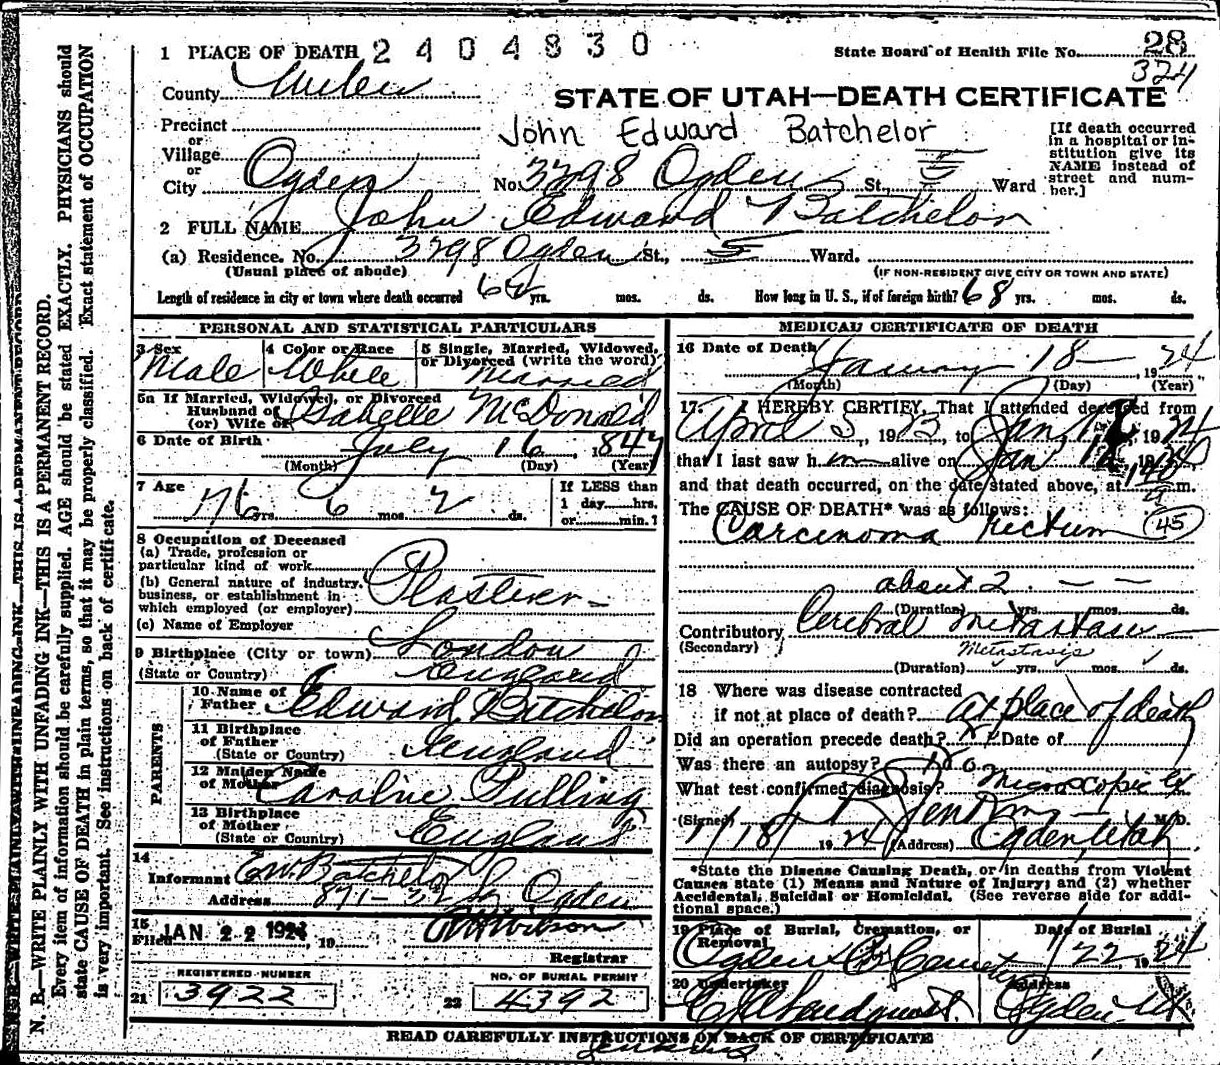 1 PLACE OF DEATH 2404830
State Board of Health File No. 28
324
County Weber
STATE OF UTAH—DEATH CERTIFICATE
Precinct
or
Village
or
City Ogden
John Edward Batchelor
No. 3298 Ogden St., 5 Ward
[If death occurred in a hospital or institution give its NAME instead of street and number.]
2 FULL NAME John Edward Batchelor
(a) Residence. No. 3298 Ogden St., 5 Ward.
(Usual place of abode)
(IF NON-RESIDENT GIVE CITY OR TOWN AND STATE)
Length of residence in city or town where death occurred yrs. mos. ds. How long in U. S., if of foreign birth? 68 yrs. mos. ds.
PERSONAL AND STATISTICAL PARTICULARS
3 Sex
Male
4 Color or Race
White
5 Single, Married, Widowed, or Divorced (write the word)
Married
5a If Married, Widowed, or Divorced
Husband of
(or) Wife of
Isabelle McDonald
6 Date of Birth July 16, 1847
(Month) (Day) (Year)
7 Age 76 yrs. 6 mos. 2 ds.
If LESS than
1 day hrs.
or min.?
8 Occupation of Deceased
(a) Trade, profession or
particular kind of work
(b) General nature of industry,
business, or establishment in
which employed (or employer)
Plasterer
(c) Name of Employer
9 Birthplace (City or town) London
(State or Country) England
PARENTS
10 Name of Father Edward Batchelor
11 Birthplace of Father
(State or Country) England
12 Maiden Name of Mother Caroline Pulling
13 Birthplace of Mother
(State or Country) England
14
Informant E.W. Batchelor
Address 871- Ogden
15
Filed JAN 22 1924, 19
Wilson
Registrar
REGISTERED NUMBER
21 3922
NO. OF BURIAL PERMIT
22 4392
MEDICAL CERTIFICATE OF DEATH
16 Date of Death January 18 — , 1924
(Month) (Day) (Year)
17. I HEREBY CERTIFY, That I attended deceased from
April 5, 1923, to Jan 1924
that I last saw him alive on Jan
and that death occurred, on the date stated above, at m.
The CAUSE OF DEATH* was as follows:
Carcinoma Rectum 45
about 2 — —
(Duration) yrs. mos. ds.
Contributory Cerebral
(Secondary)
Metastasis
(Duration) yrs. mos. ds.
18 Where was disease contracted
if not at place of death? At place of death
Did an operation precede death? Date of
Was there an autopsy? No
What test confirmed diagnosis? Microscopic Ex
(Signed) Jenkins M.D.
1/18/ 1924 (Address) Ogden, Utah
*State the Disease Causing Death, or in deaths from Violent
Causes state (1) Means and Nature of Injury; and (2) whether
Accidental, Suicidal or Homicidal. (See reverse side for additional space.)
19 Place of Burial, Cremation, or Removal
Ogden Cemetery
Date of Burial
1/22, 1924
20 Undertaker
Address
Ogden Ut.
READ CAREFULLY INSTRUCTIONS ON BACK OF CERTIFICATE
Jenkins
N. B.—WRITE PLAINLY WITH UNFADING INK—THIS IS A PERMANENT RECORD.
Every item of information should be carefully supplied. AGE should be stated EXACTLY. PHYSICIANS should
state CAUSE OF DEATH in plain terms, so that it may be properly classified. Exact statement of OCCUPATION
is very important. See instructions on back of certificate.